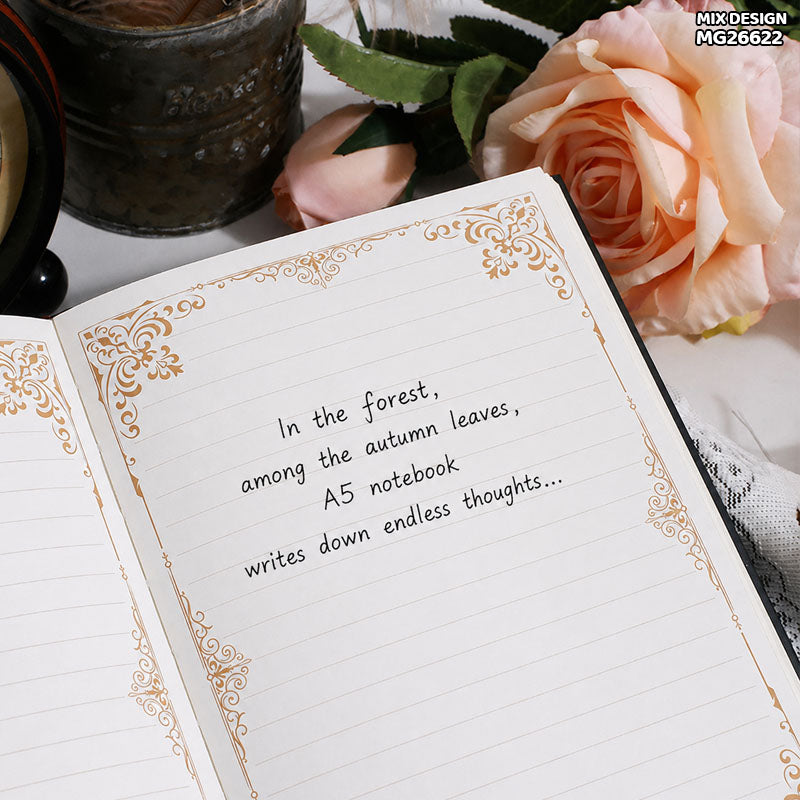 MIX DESIGN
MG26622
In the forest,
among the autumn leaves,
A5 notebook
writes down endless thoughts...